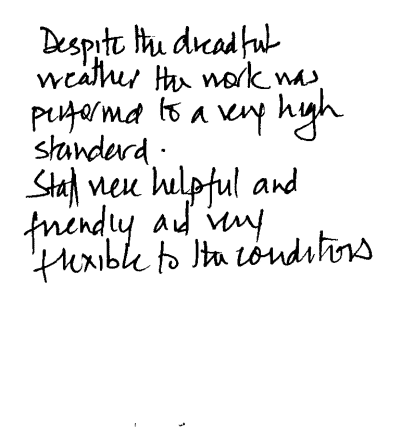 Despite the dreadful
weather the work was
performed to a very high
standard.
Staff were helpful and
friendly and very
flexible to the conditions